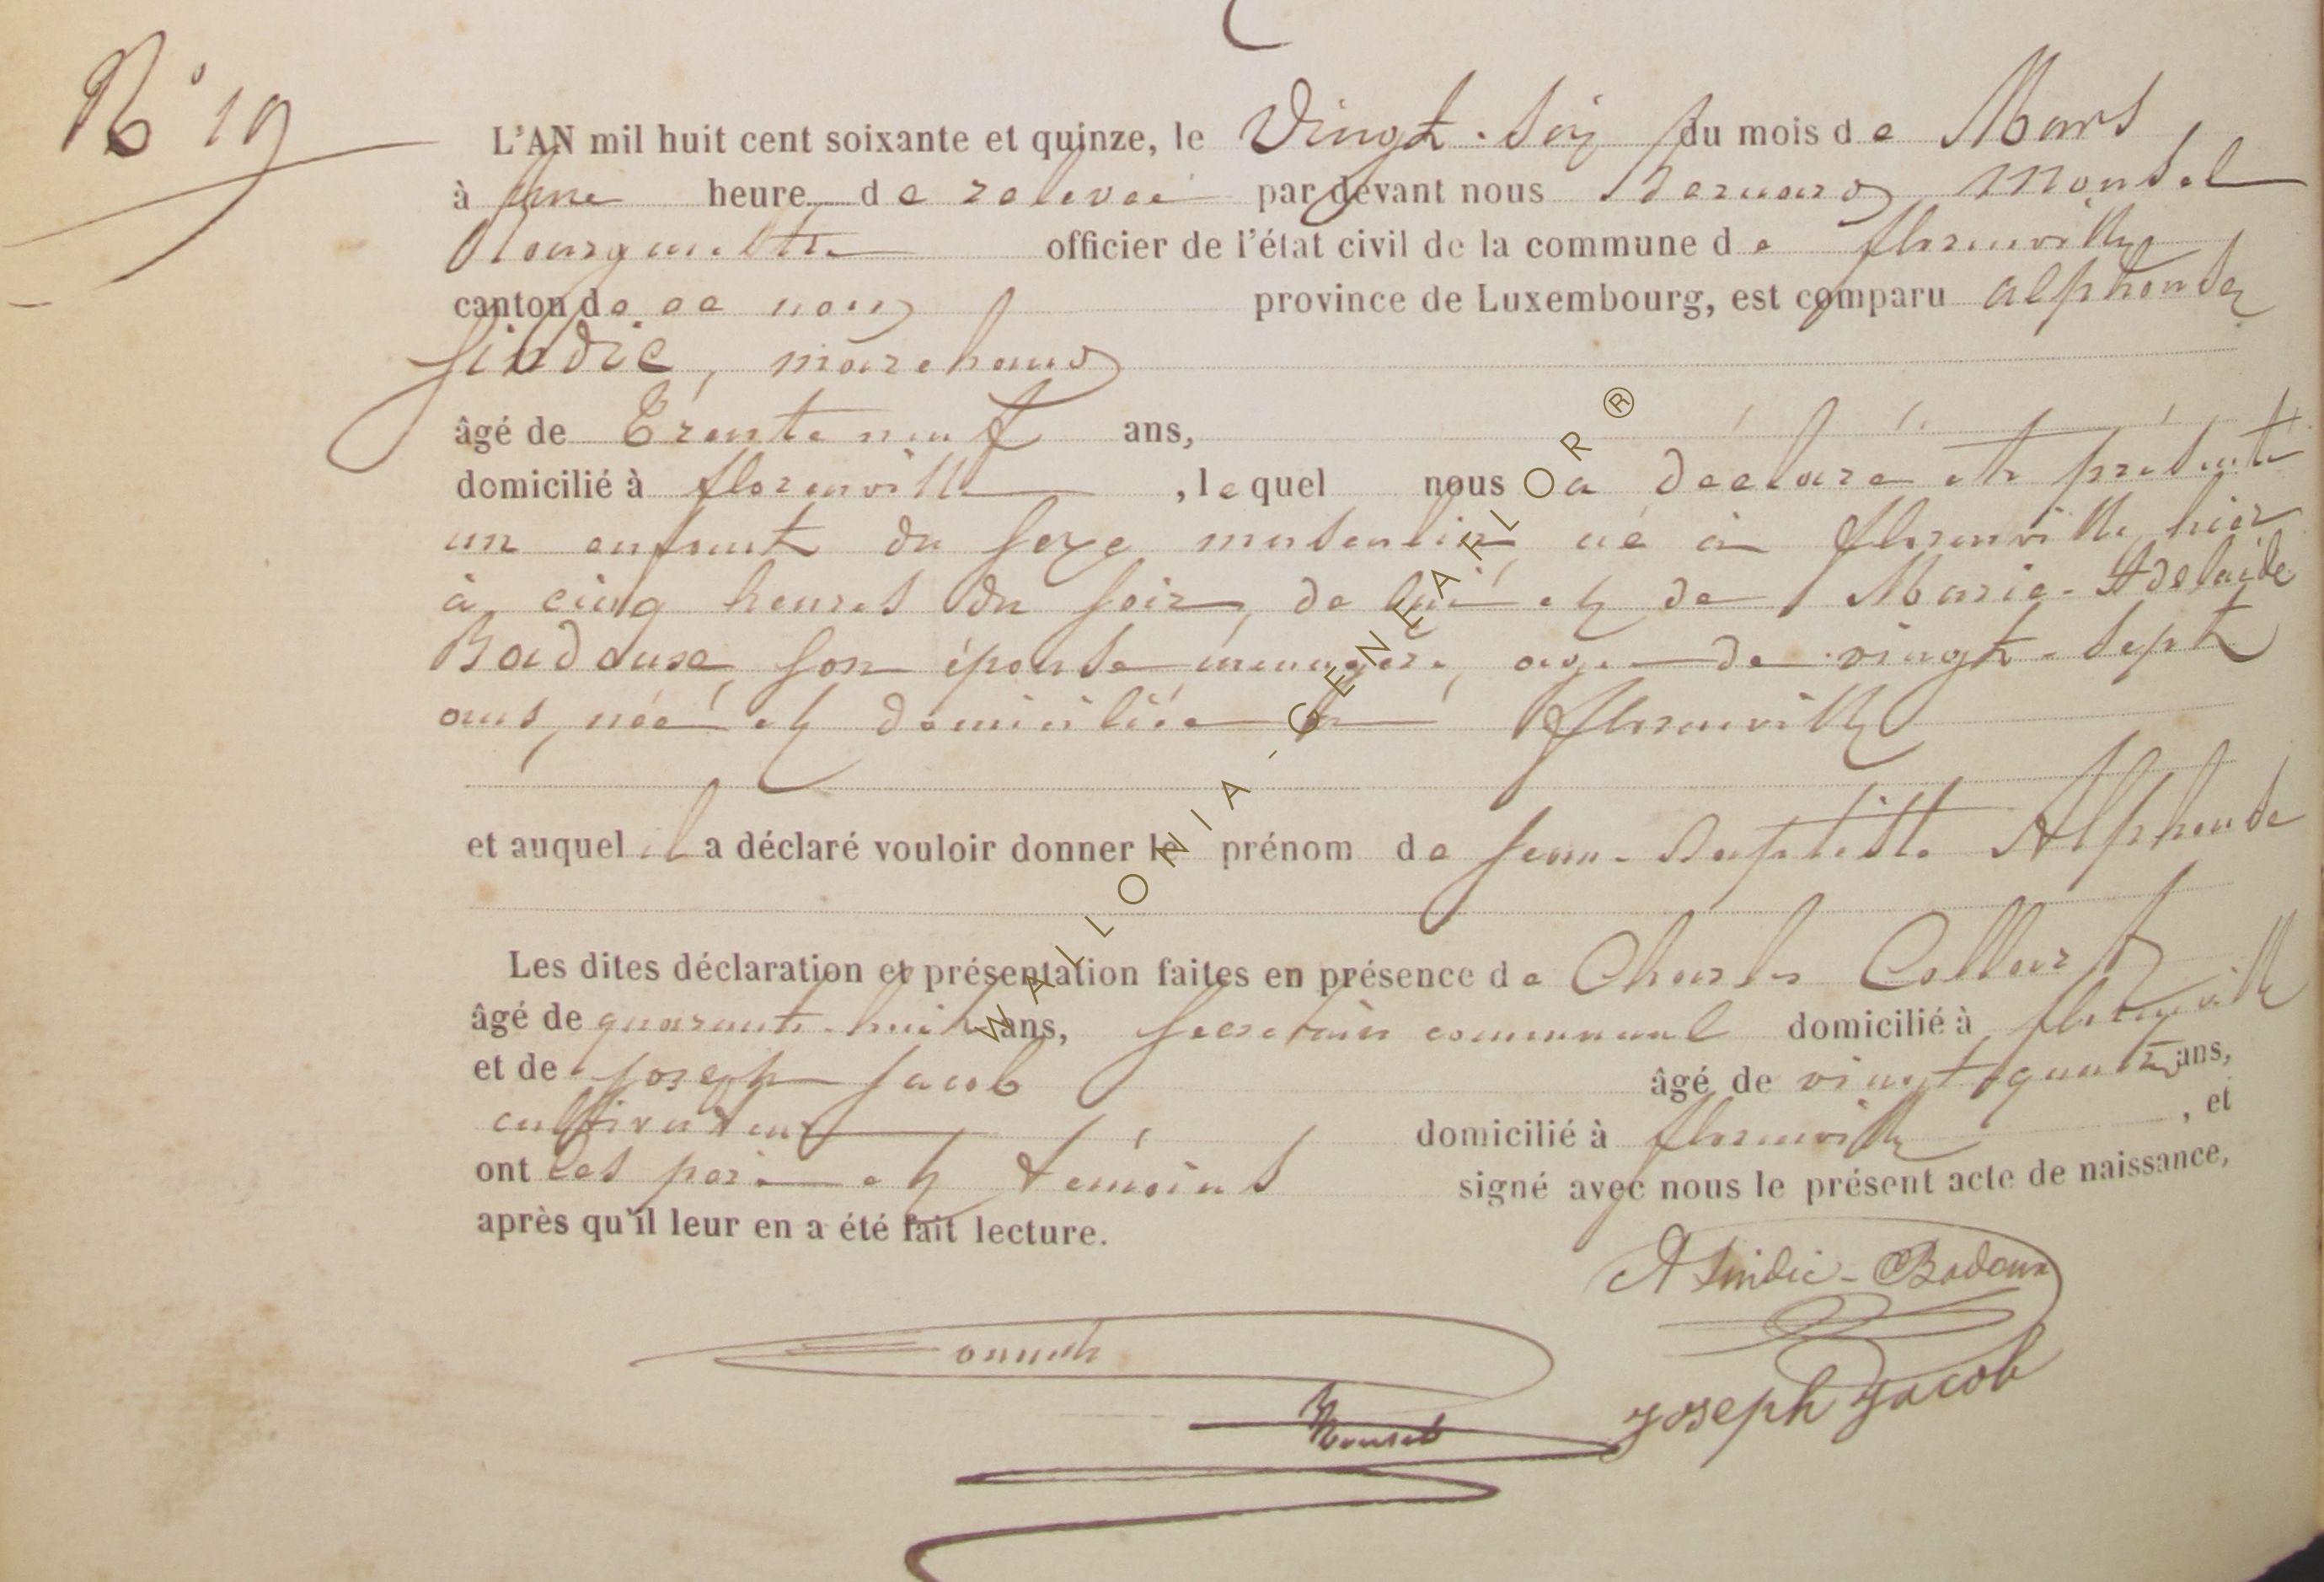 N° 19
L'AN mil huit cent soixante et quinze, le Vingt-Six du mois de Mars
à Une heure de relevée par devant nous Bernard Monsel
Bourgmestre officier de l'état civil de la commune de florenville
canton de ce nom province de Luxembourg, est comparu alphonse
Sindic, marchand
âgé de Trente neuf ans,
domicilié à florenville , lequel nous a déclaré et présenté
un enfant du sexe masculin né à florenville hier
à cinq heures du soir, de lui et de Marie-Adelaïde
Badouxe, son épouse ménagère, agée de vingt-sept
ans, née et domiciliée à florenville
et auquel il a déclaré vouloir donner le prénom de Jean-Baptiste Alphonse
Les dites déclaration et présentation faites en présence de Charles Collart
âgé de quarante-huit ans, Secrétaire communal domicilié à florenville
et de Joseph Jacob âgé de vingt quatre ans,
cultivateur domicilié à florenville , et
ont les père et témoins signé avec nous le présent acte de naissance,
après qu'il leur en a été fait lecture.
A Sindic-Badoux
Monsel
Joseph Jacob
WALLONIA-GENEARLOR®